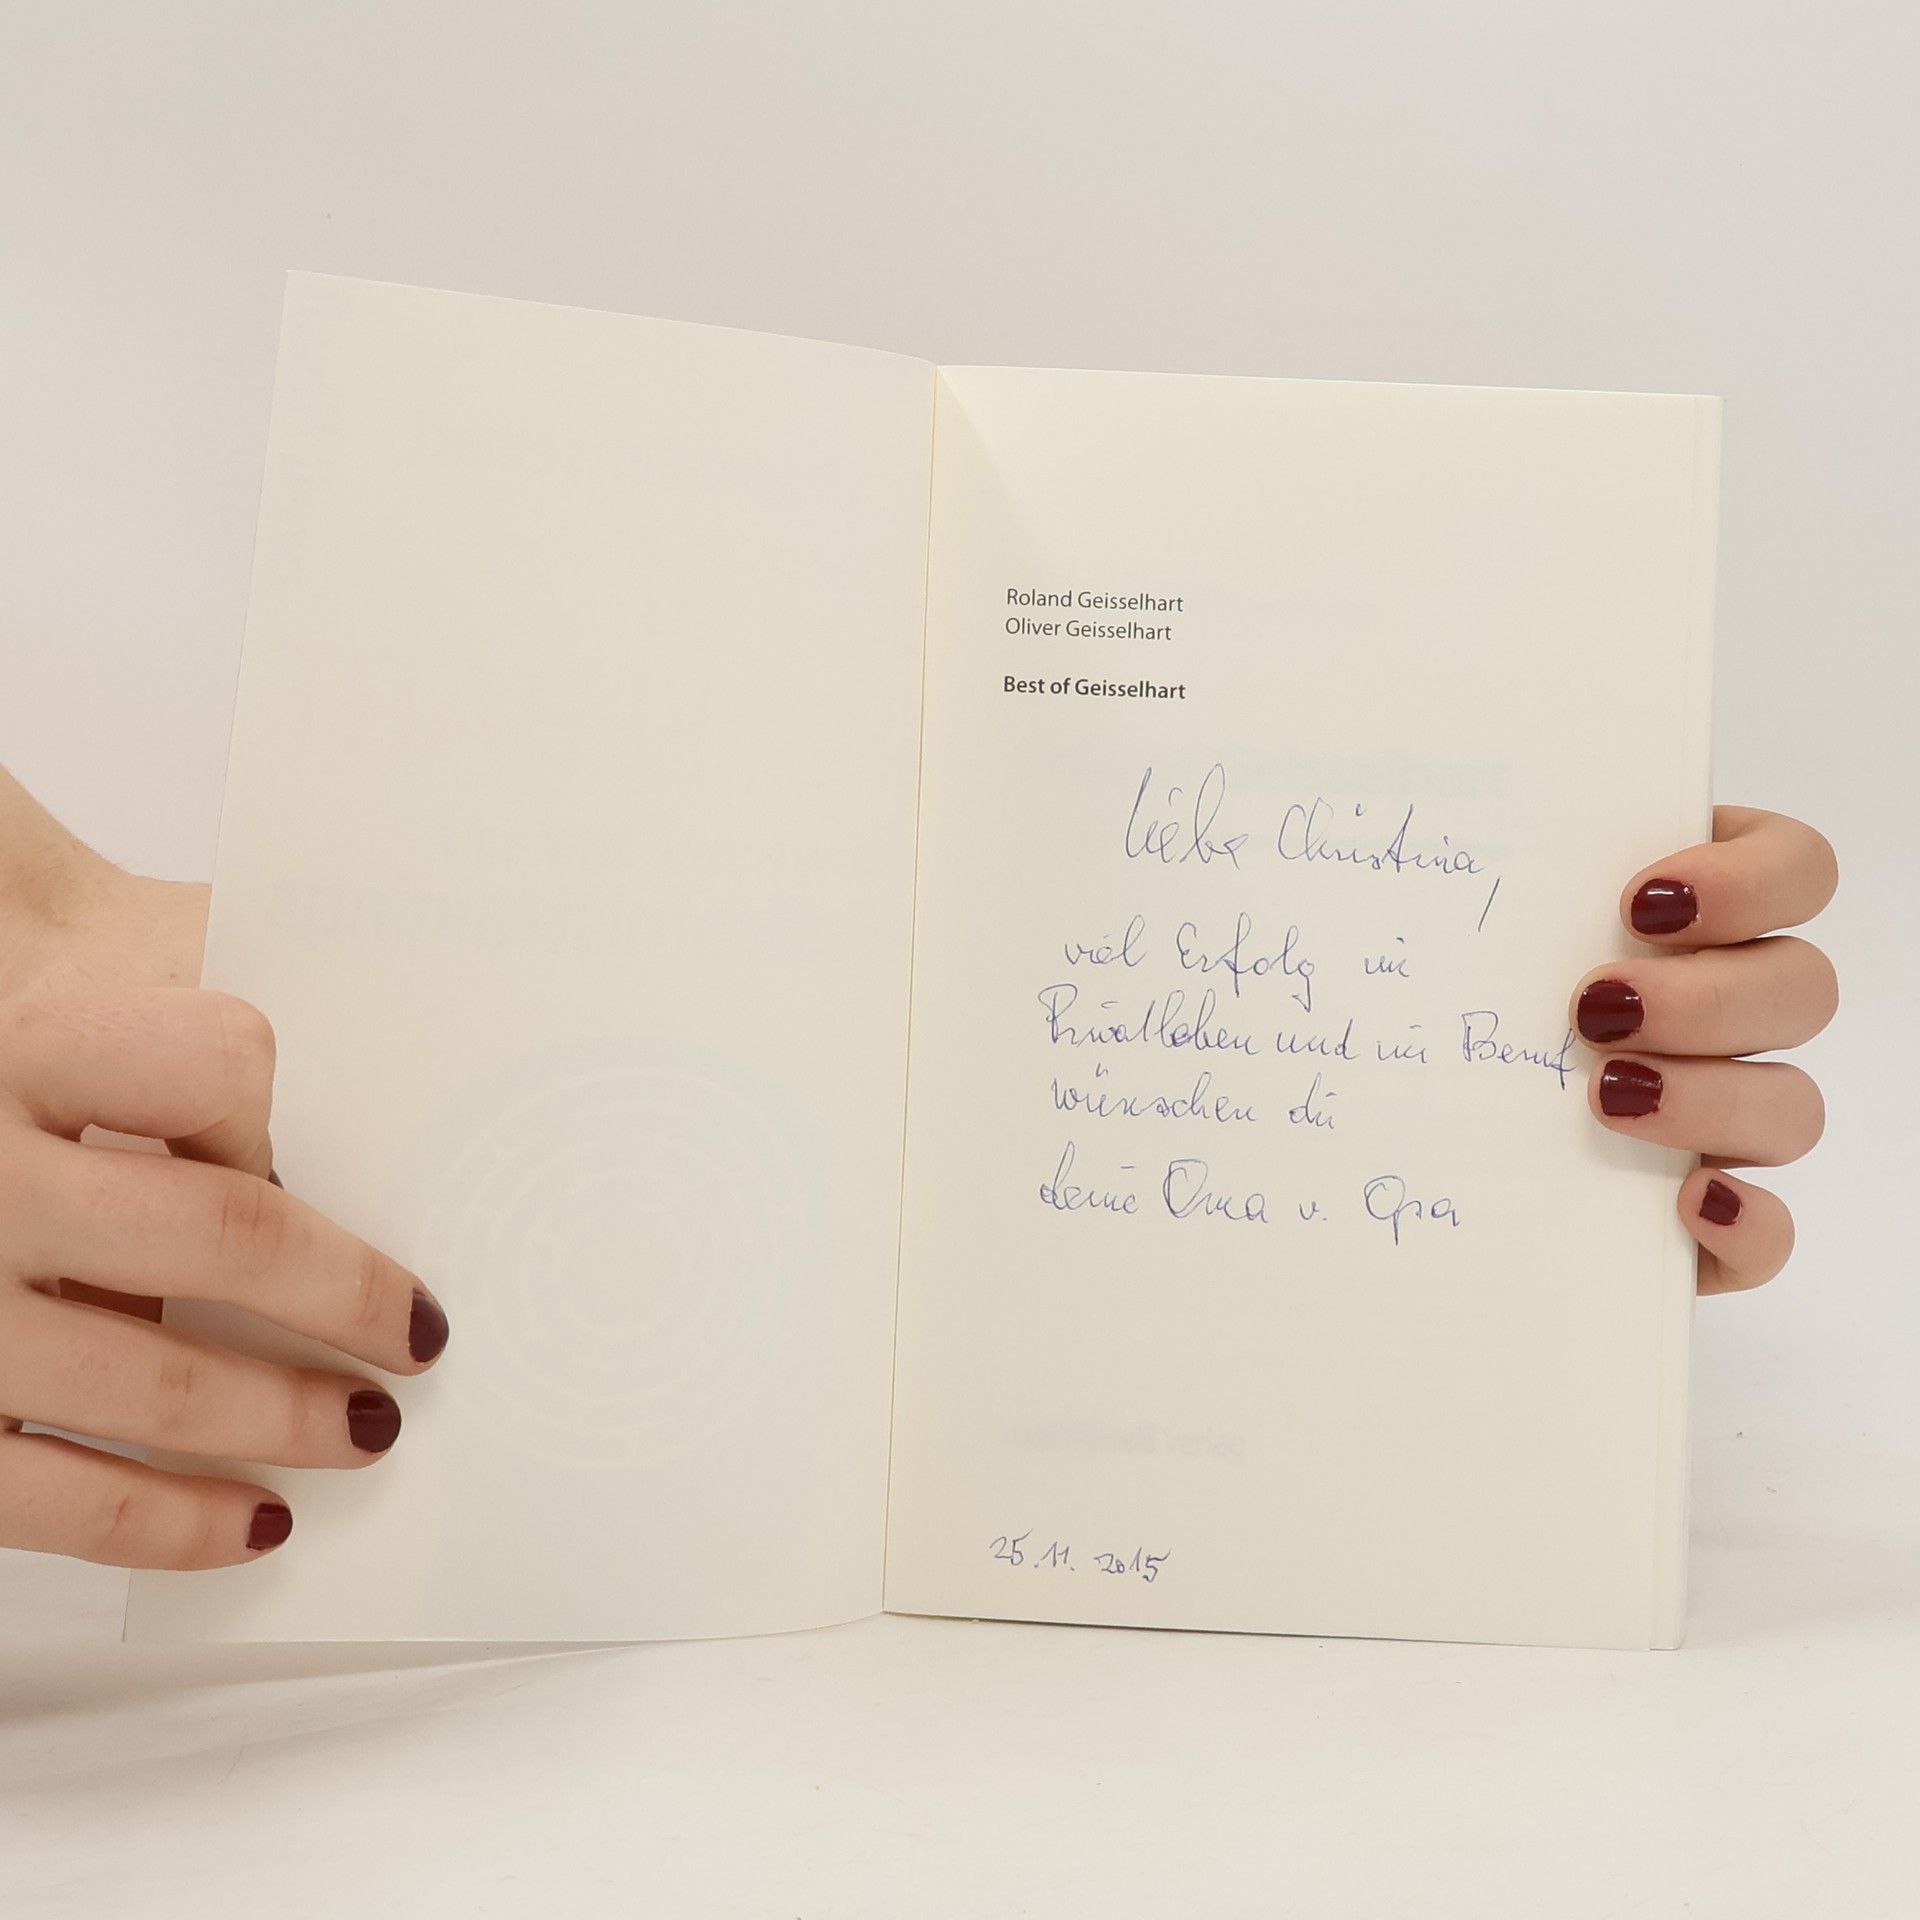 Roland Geisselhart
Oliver Geisselhart
Best of Geisselhart
Liebe Christina,
viel Erfolg im
Privatleben und im Beruf
wünschen dir
deine Oma u. Opa
25.11.2015